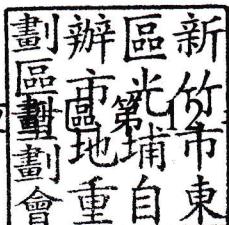 新竹市東
區光埔自
辦市地重
劃區重劃會
區第12